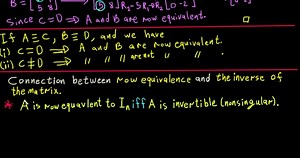 B = [5 8] R2-5R1→R2 [0 -2]
Since C=D ⇒ A and B are row equivalent.
If A≡C, B≡D, and we have
(i) C=D ⇒ A and B are row equivalent.
(ii) C≠D ⇒ " " " are not " " .
Connection between row equivalence and the inverse of
the matrix.
* A is row equivalent to In iff A is invertible (nonsingular).